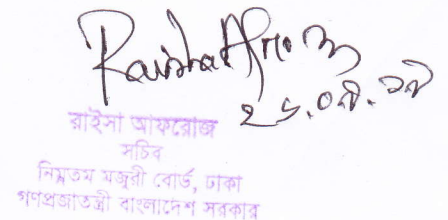 Raisha Afroz
২৬.০৯.১৯
রাইসা আফরোজ
সচিব
নিম্নতম মজুরী বোর্ড, ঢাকা
গণপ্রজাতন্ত্রী বাংলাদেশ সরকার